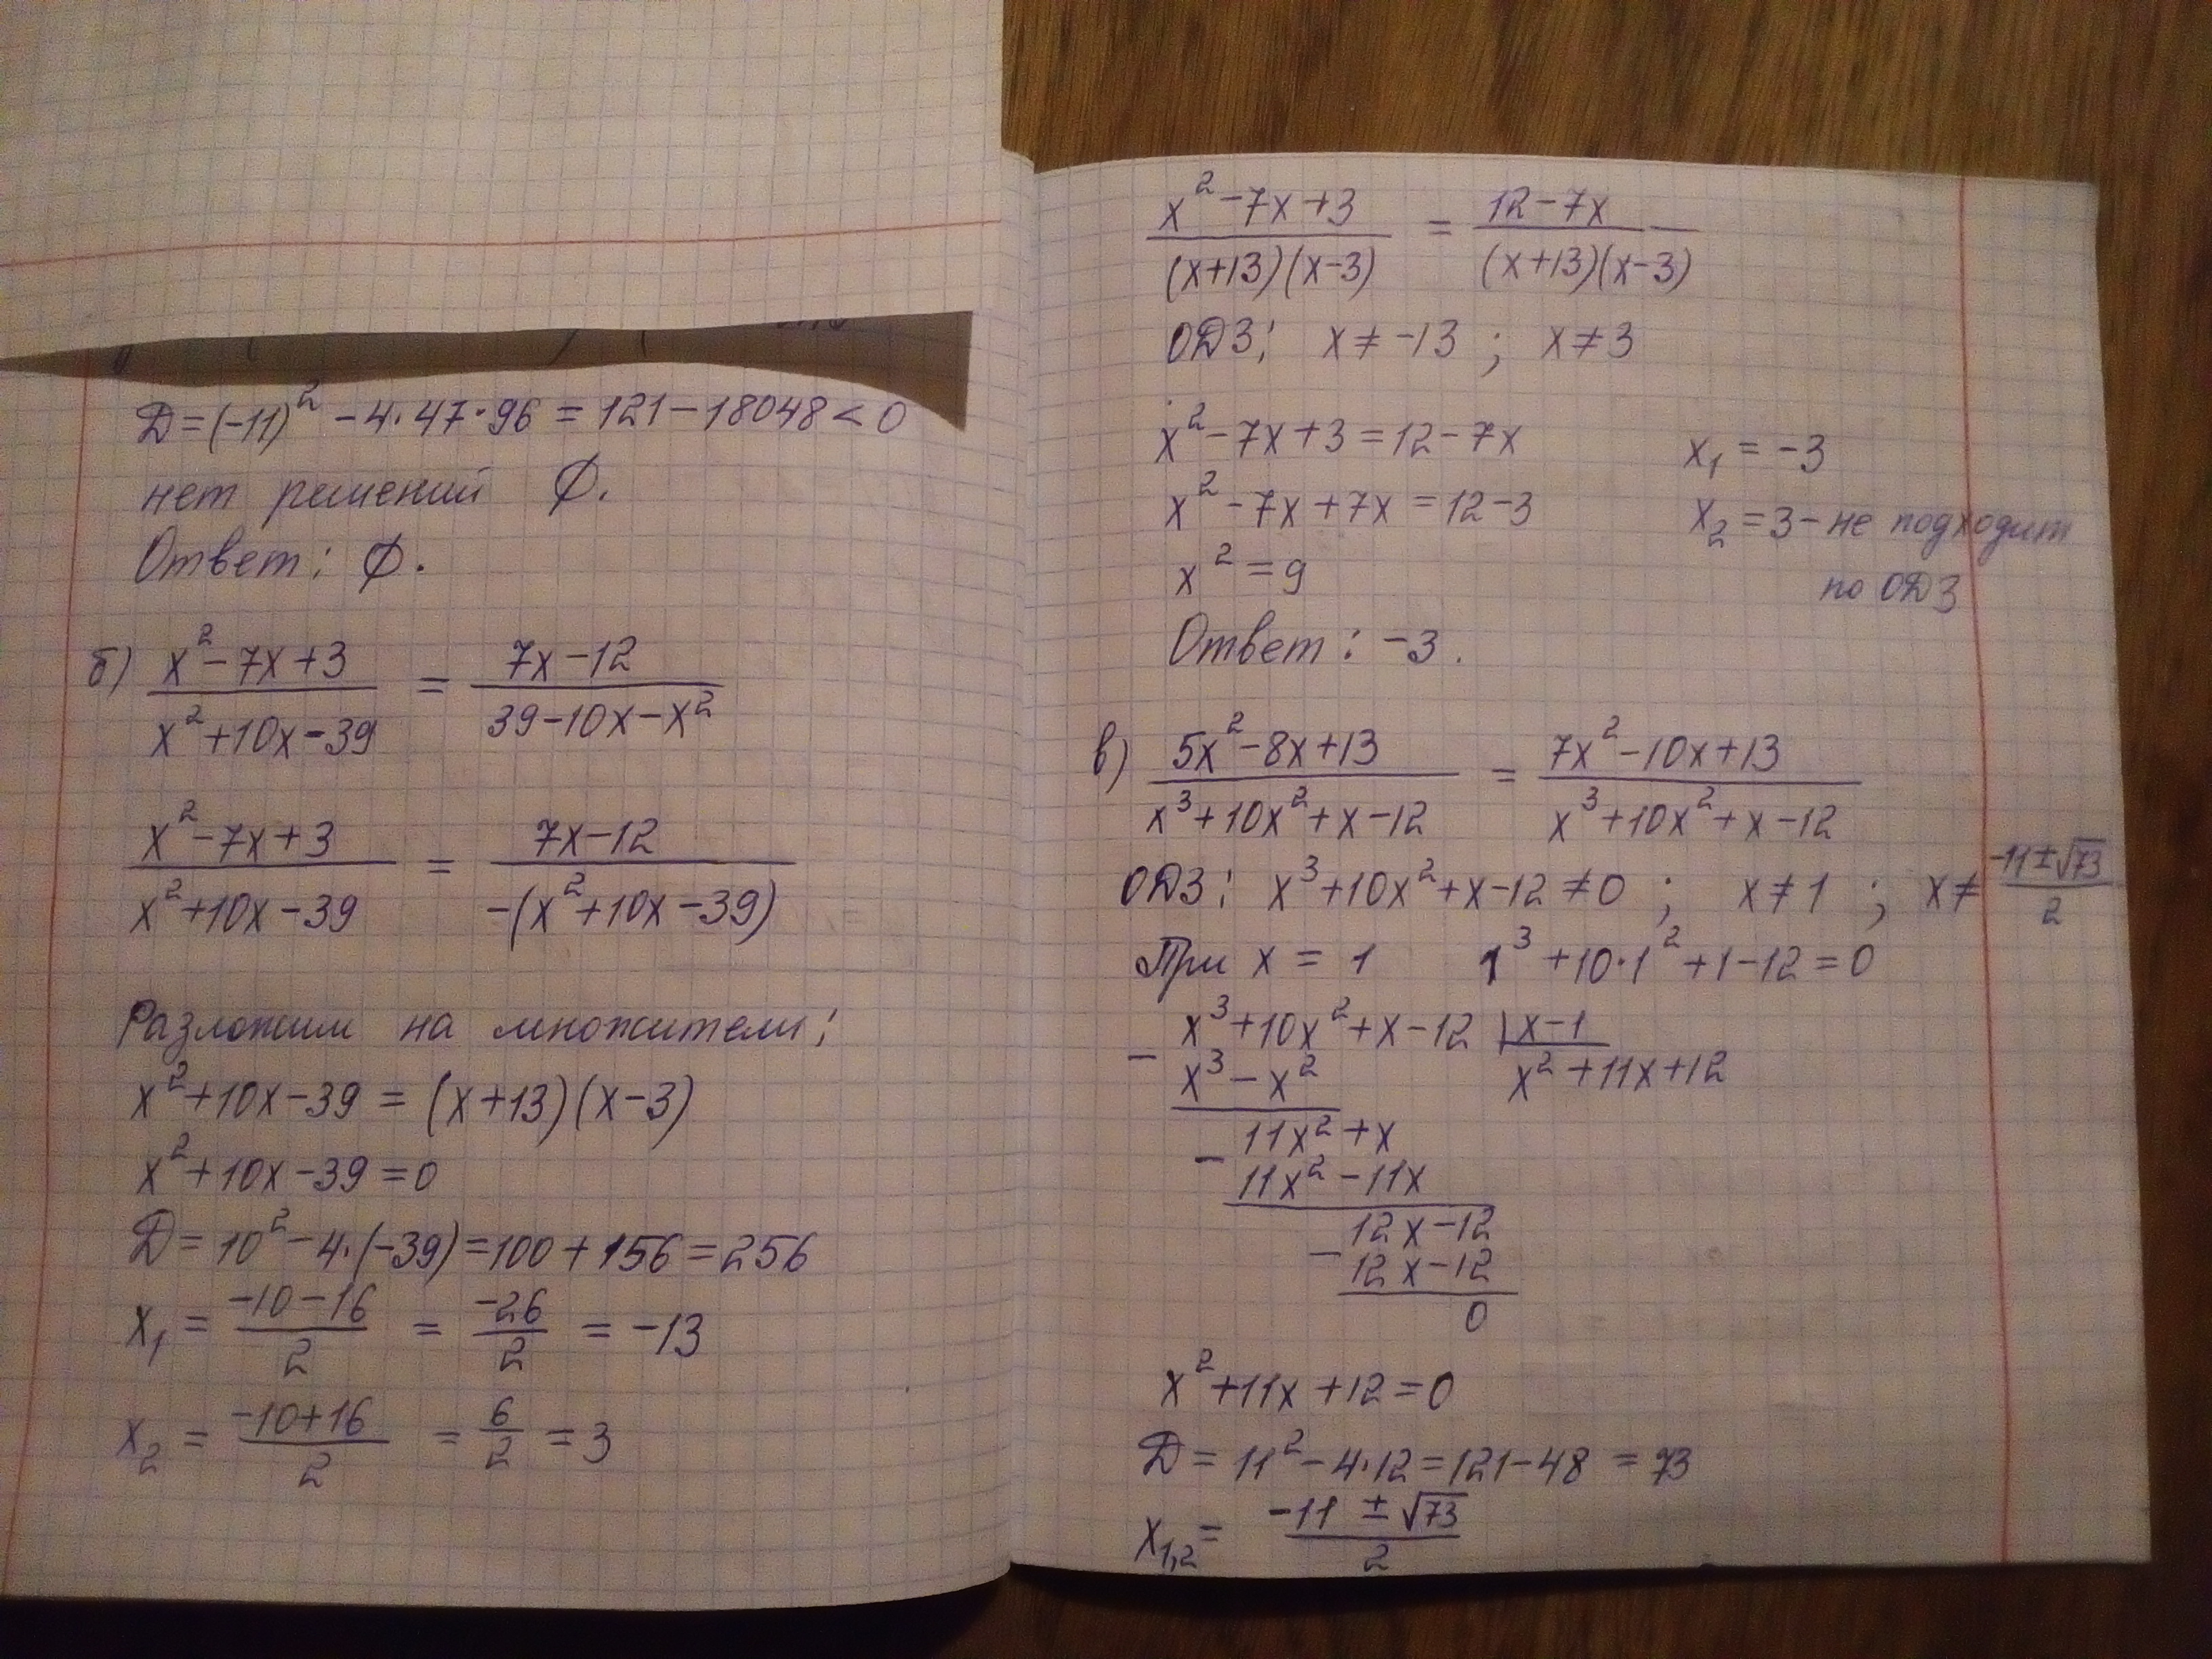 D=(-11)² -4·47·96 = 121-18048 < 0
нет решений ∅.
Ответ: ∅.
б) (x²-7x+3)/(x²+10x-39) = (7x-12)/(39-10x-x²)
(x²-7x+3)/(x²+10x-39) = (7x-12)/(-(x²+10x-39))
Разложим на множители:
x²+10x-39 = (x+13)(x-3)
x²+10x-39=0
D=10²-4·(-39)=100+156=256
x₁ = (-10-16)/2 = -26/2 = -13
x₂ = (-10+16)/2 = 6/2 = 3
(x²-7x+3)/((x+13)(x-3)) = (12-7x)/((x+13)(x-3))
ОДЗ: x≠-13 ; x≠3
x²-7x+3=12-7x x₁ = -3
x²-7x+7x=12-3 x₂ =3- не подходит
x²=9 по ОДЗ
Ответ: -3.
в) (5x²-8x+13)/(x³+10x²+x-12) = (7x²-10x+13)/(x³+10x²+x-12)
ОДЗ: x³+10x²+x-12≠0 ; x≠1 ; x≠ (-11±√73)/2
При x = 1 1³+10·1²+1-12=0
x³+10x²+x-12 | x-1
- x³-x² x²+11x+12
11x²+x
- 11x²-11x
12x-12
- 12x-12
0
x²+11x+12=0
D= 11²-4·12=121-48 = 73
x₁,₂= (-11 ± √73)/2